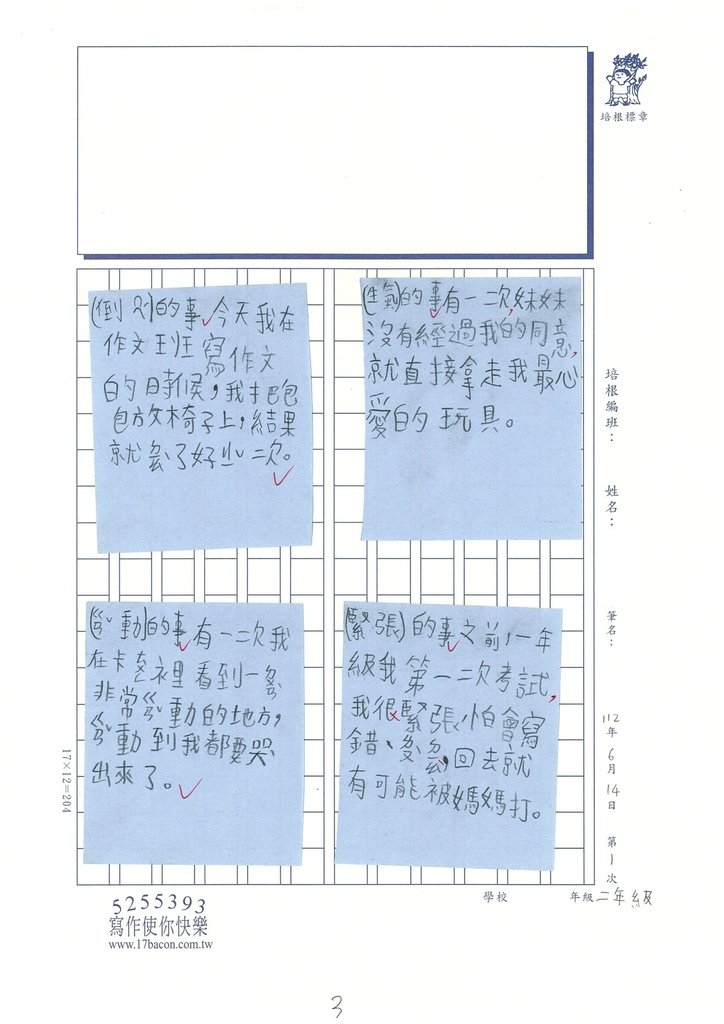 培根標章
(倒ㄉㄠˇ)的事,今天我在
作文班寫作文
的時候,我把包
包放椅子上,結果
就忘了好少二次。
(生氣)的事有一次,妹妹
沒有經過我的同意,
就直接拿走我最心
愛的玩具。
(ㄍㄢˇ動)的事有一次我
在卡
裡看到一
非常ㄍㄢˇ動的地方,
ㄍㄢˇ動到我都要哭
出來了。
(緊張)的事之前,一年
級我第一次考試,
我很緊張,怕會寫
錯、
回去就
有可能被媽媽打。
培根編班:
姓名:
筆名:
112年6月14日 第1次
17×12=204
學校
年級 二年級
5255393
寫作使你快樂
www.17bacon.com.tw
3